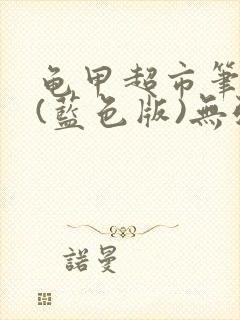 龟甲超市筆
(藍色版)無
諾曼